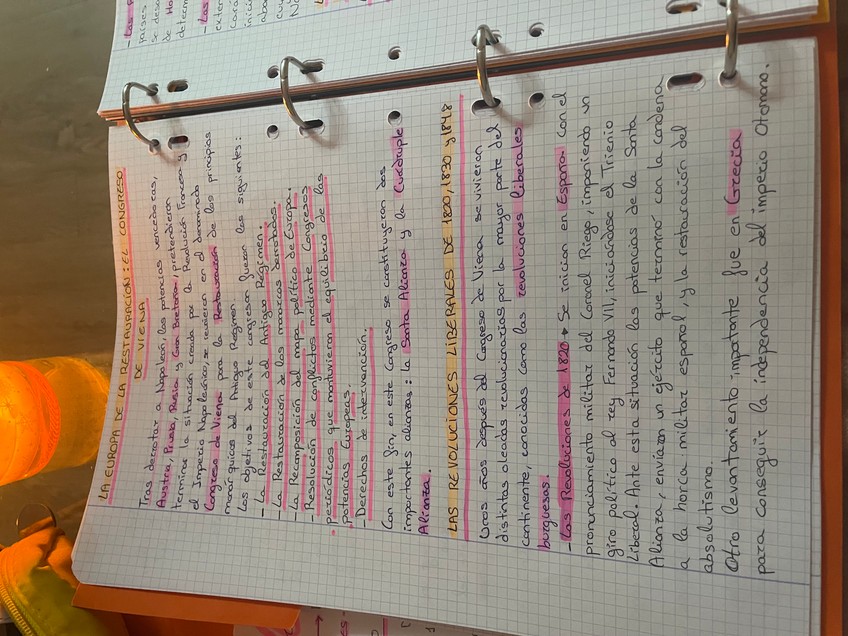 LA EUROPA DE LA RESTAURACIÓN: EL CONGRESO
DE VIENA
Tras derrotar a Napoleón, las potencias vencedoras,
Austria, Prusia, Rusia y Gran Bretaña, pretendieron
terminar la situación creada por la Revolución Francesa y
el imperio Napoleónico, se reunieron en el denominado
Congreso de Viena para la Restauración de los principios
monárquicos del Antiguo Régimen.
Los objetivos de este congreso fueron los siguientes:
- La Restauración del Antiguo Régimen.
- La Restauración de los monarcas derrotados.
- La Recomposición del mapa político de Europa.
- Resolución de conflictos mediante Congresos
periódicos que mantuvieran el equilibrio de las
potencias Europeas.
- Derechos de intervención.
Con este fin, en este Congreso se constituyeron dos
importantes alianzas: la Santa Alianza y la Cuádruple
Alianza.
LAS REVOLUCIONES LIBERALES DE 1820, 1830 y 1848
Unos años después del Congreso de Viena se vivieron
distintas oleadas revolucionarias por la mayor parte del
continente, conocidas como las revoluciones liberales
burguesas.
- Las Revoluciones de 1820 → Se inician en España con el
pronunciamiento militar del Coronel Riego, imponiendo un
giro político al rey Fernando VII, iniciándose el Trienio
Liberal. Ante esta situación las potencias de la Santa
Alianza, enviaron un ejército que terminó con la condena
a la horca militar español, y la restauración del
absolutismo.
Otro levantamiento importante fue en Grecia
para conseguir la independencia del imperio Otomano.
- Las
países
se
de
- Las